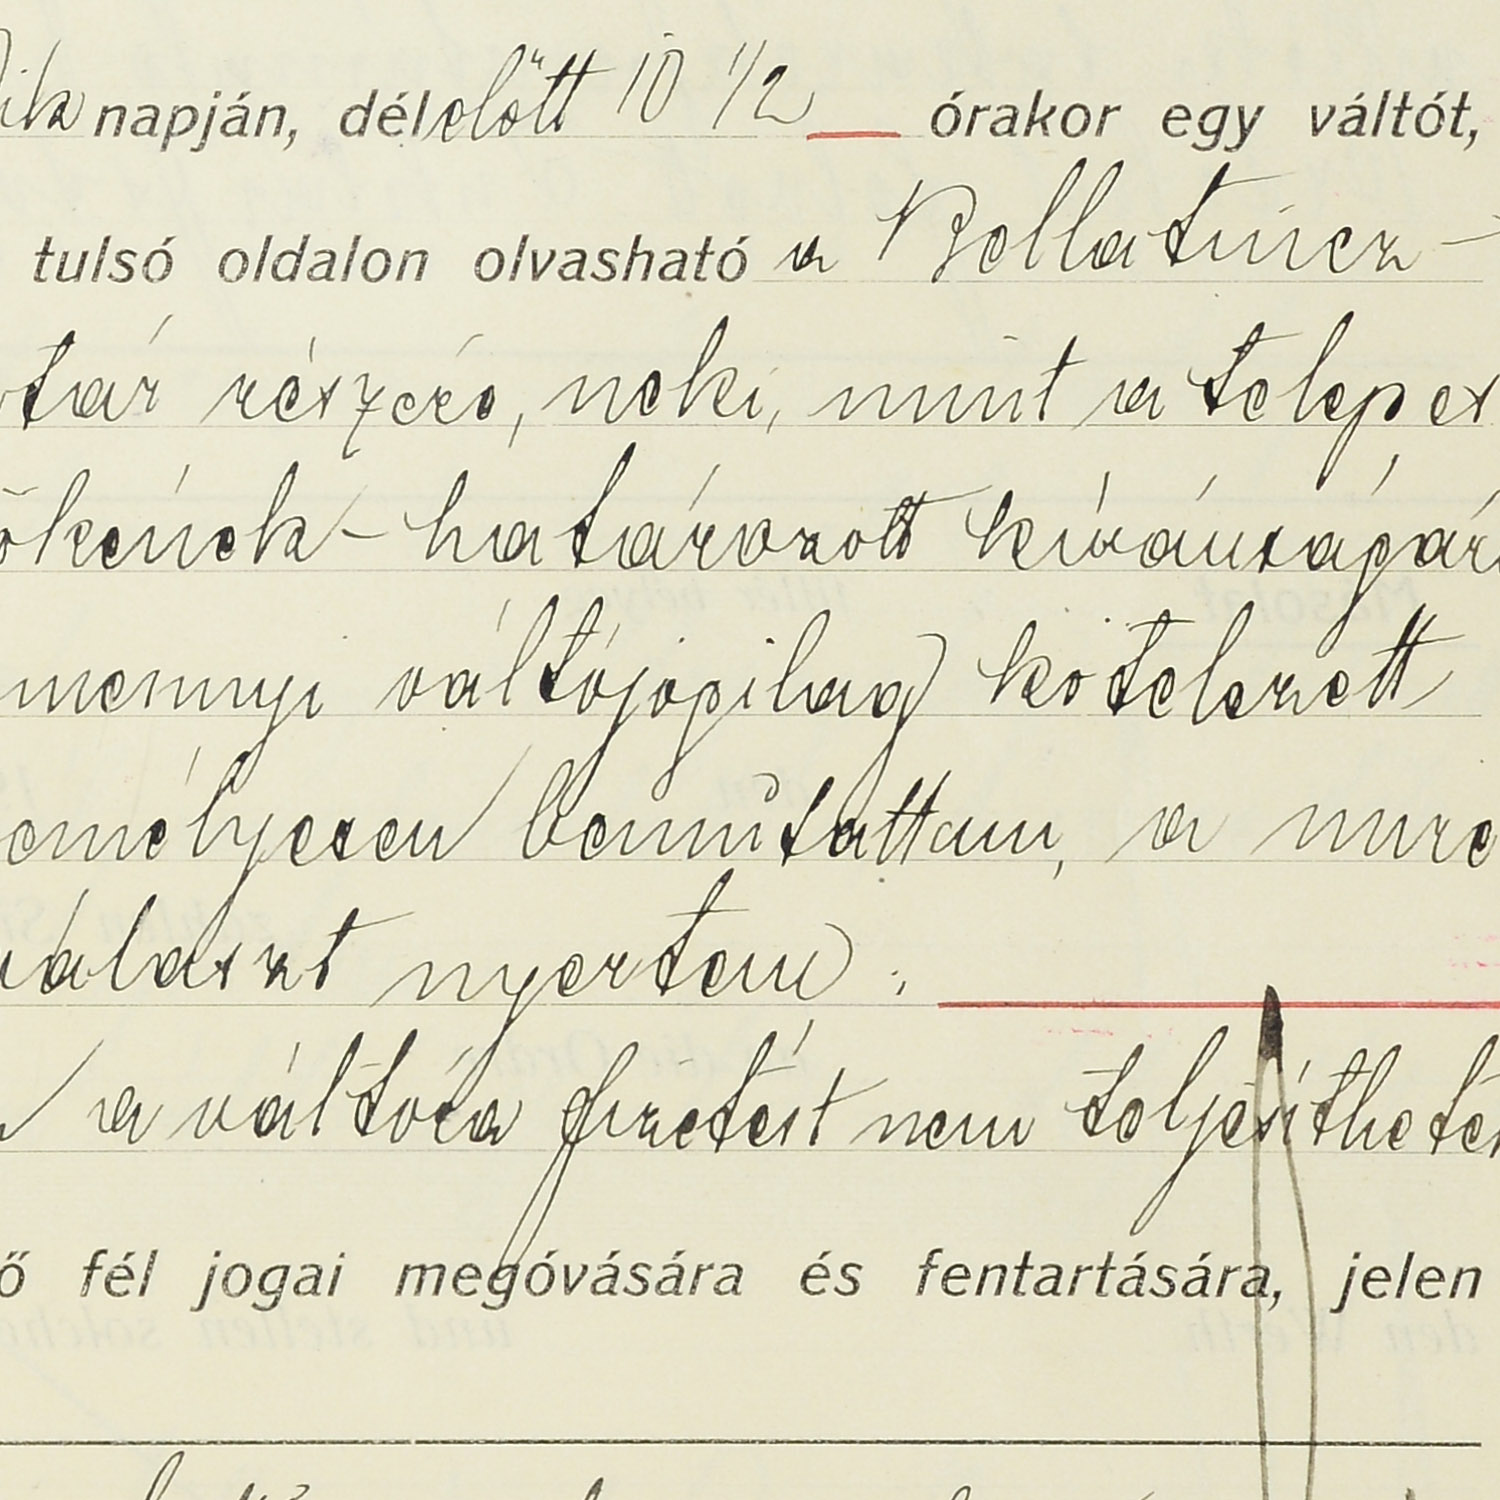 dik napján, délelőtt 10 1/2 órakor egy váltót,
tulsó oldalon olvasható a Bellatincz-
tár részére, neki, mint a telepes
őkének - határozott kívánságára
mennyi váltójogilag kötelezett
emélyesen bemutattam, a mire
választ nyertem:
a váltóra fizetést nem teljesíthetek
ő fél jogai megóvására és fentartására, jelen